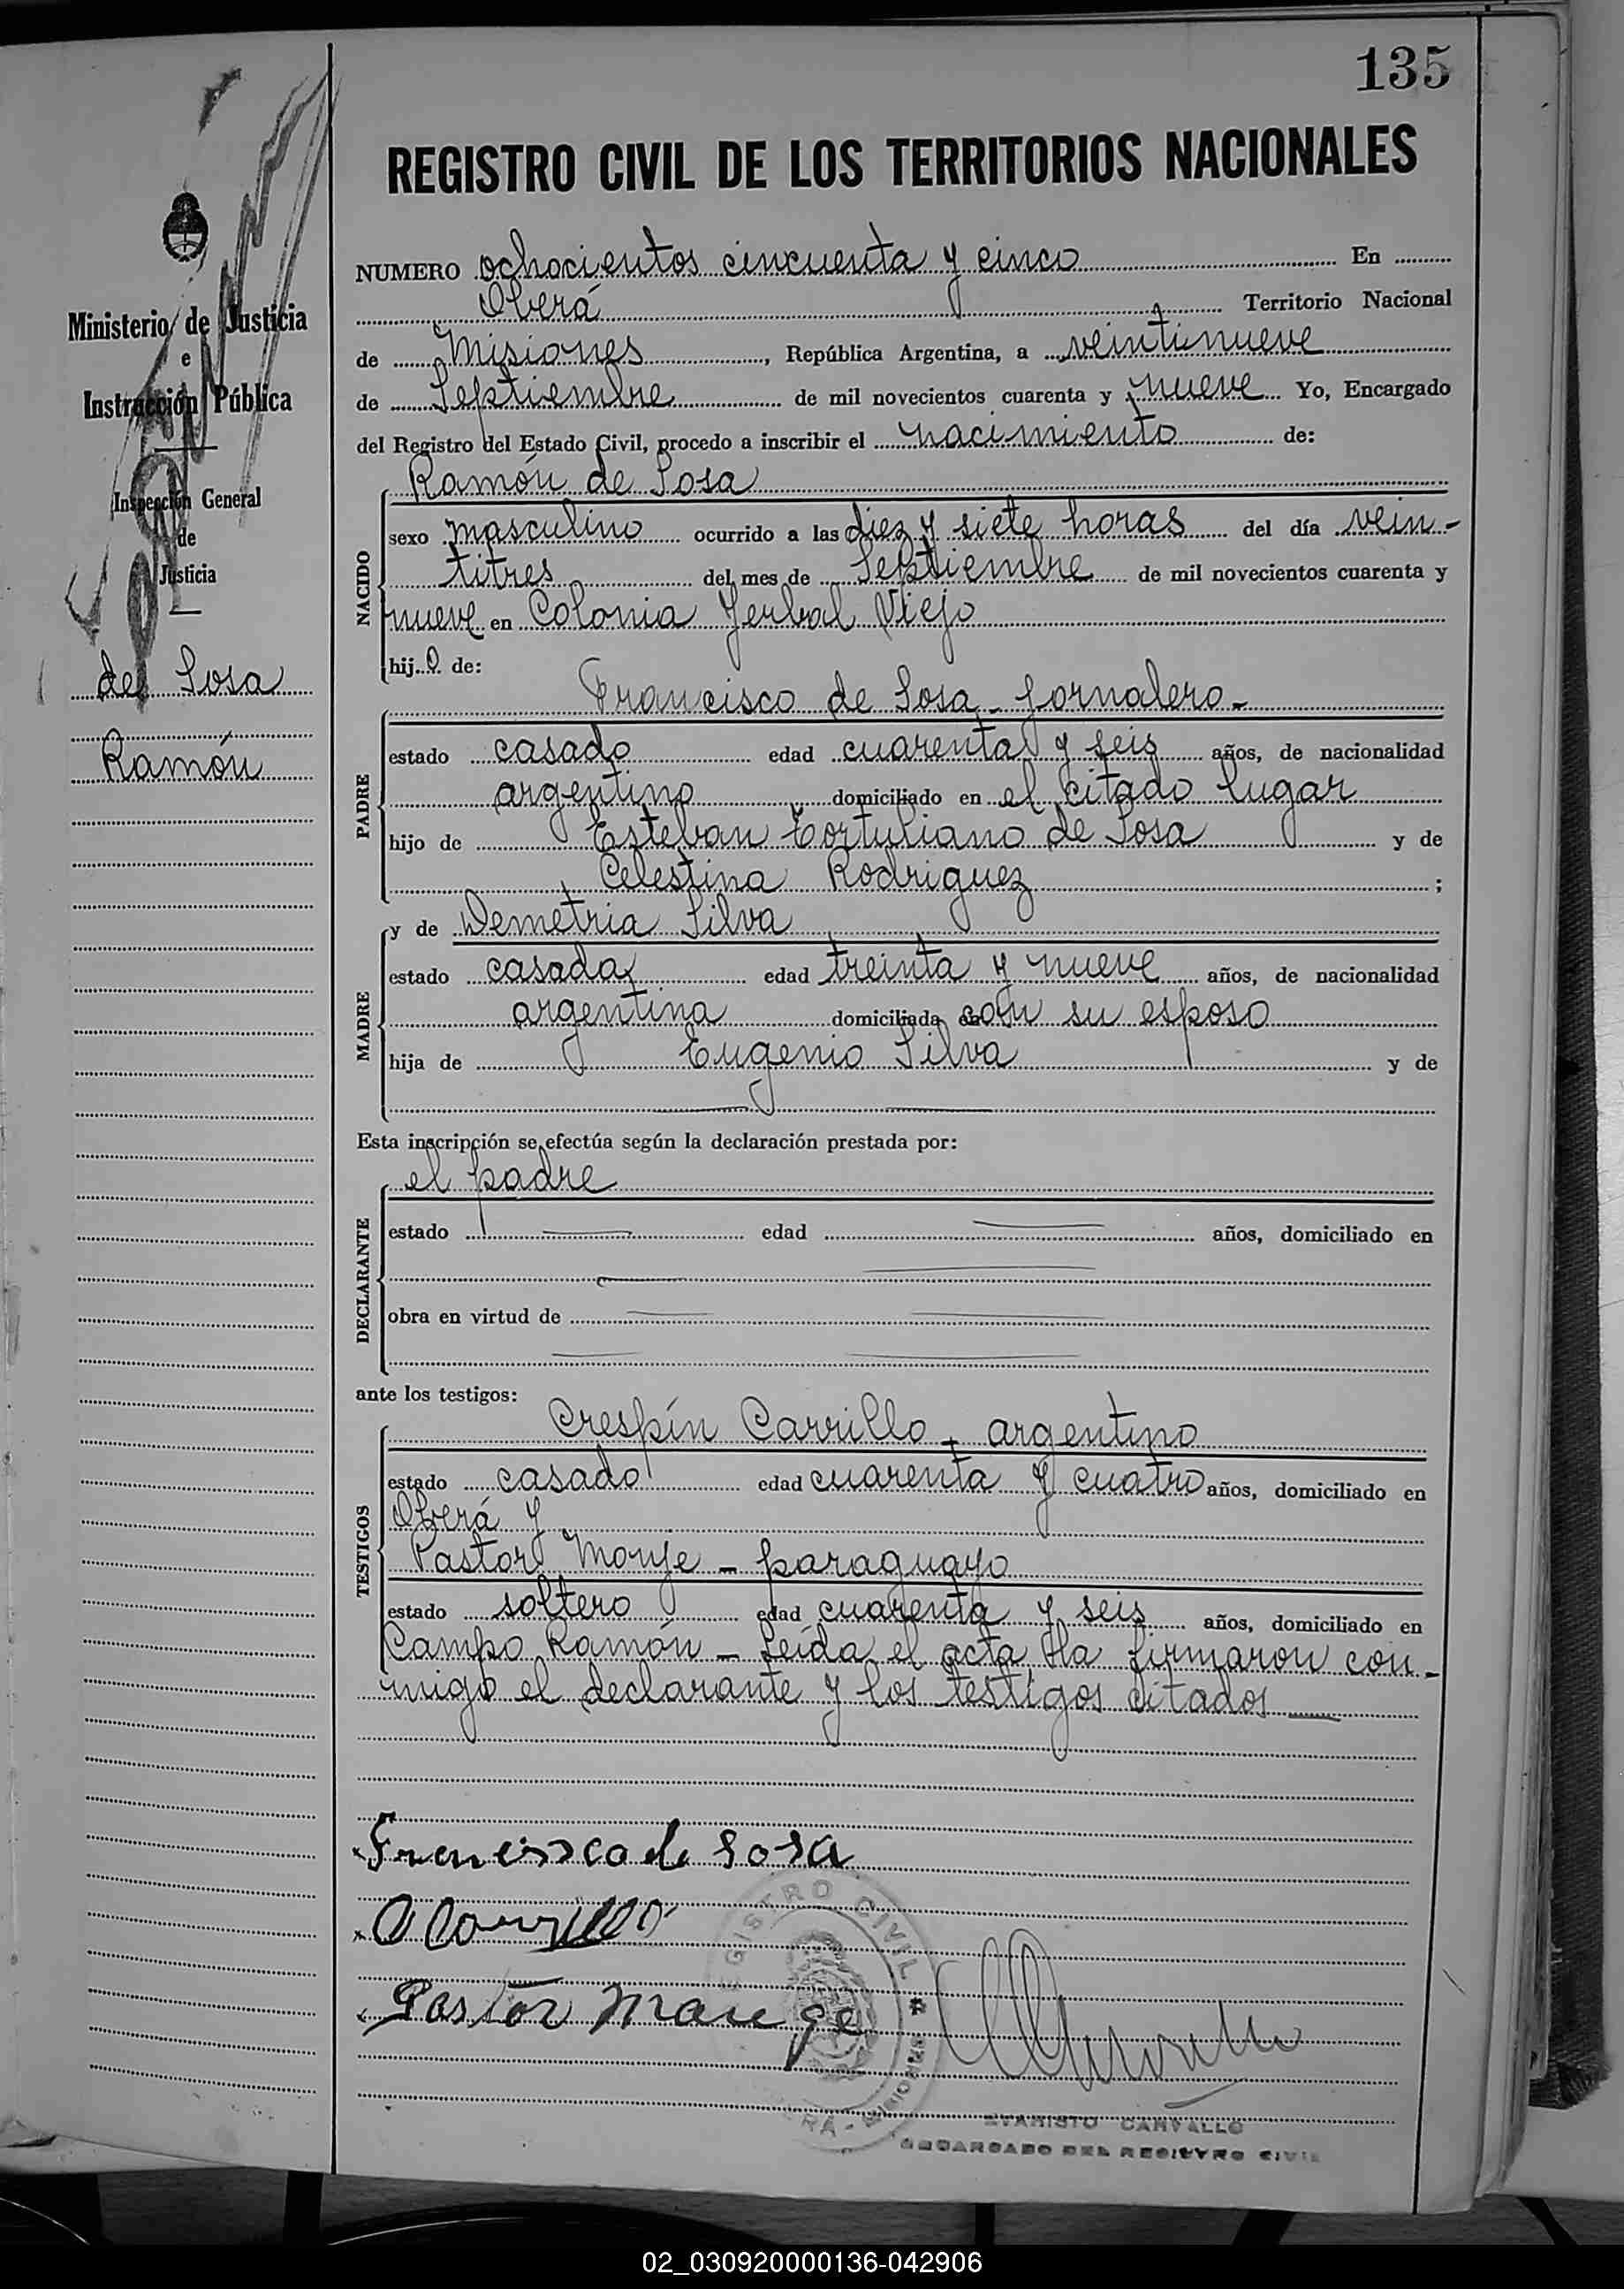 135
REGISTRO CIVIL DE LOS TERRITORIOS NACIONALES
Ministerio de Justicia
e
Instrucción Pública
Inspección General
de
Justicia
de Sosa
Ramón
NUMERO ochocientos cincuenta y cinco En
Oberá Territorio Nacional
de Misiones, República Argentina, a veintinueve
de Septiembre de mil novecientos cuarenta y nueve Yo, Encargado
del Registro del Estado Civil, procedo a inscribir el nacimiento de:
NACIDO
Ramón de Sosa
sexo masculino ocurrido a las diez y siete horas del día vein-
titres del mes de Septiembre de mil novecientos cuarenta y
nueve en Colonia Yerbal Viejo
hijo de:
PADRE
Francisco de Sosa - Jornalero -
estado casado edad cuarenta y seis años, de nacionalidad
argentino domiciliado en el citado lugar
hijo de Esteban Tortuliano de Sosa y de
Celestina Rodriguez ;
MADRE
y de Demetria Silva
estado casada edad treinta y nueve años, de nacionalidad
argentina domiciliada con su esposo
hija de Eugenio Silva y de
Esta inscripción se efectúa según la declaración prestada por:
DECLARANTE
el padre
estado edad años, domiciliado en
obra en virtud de
ante los testigos:
TESTIGOS
Crespín Carrillo - argentino
estado casado edad cuarenta y cuatro años, domiciliado en
Oberá y
Pastor Monje - paraguayo
estado soltero edad cuarenta y seis años, domiciliado en
Campo Ramón - Leída el acta, la firmaron con-
migo el declarante y los testigos citados
Francisco de Sosa
C Carrillo
Pastor Monge
REGISTRO CIVIL
OBERÁ - MISIONES
EVARISTO CARVALLO
ENCARGADO DEL REGISTRO CIVIL
02_030920000136-042906